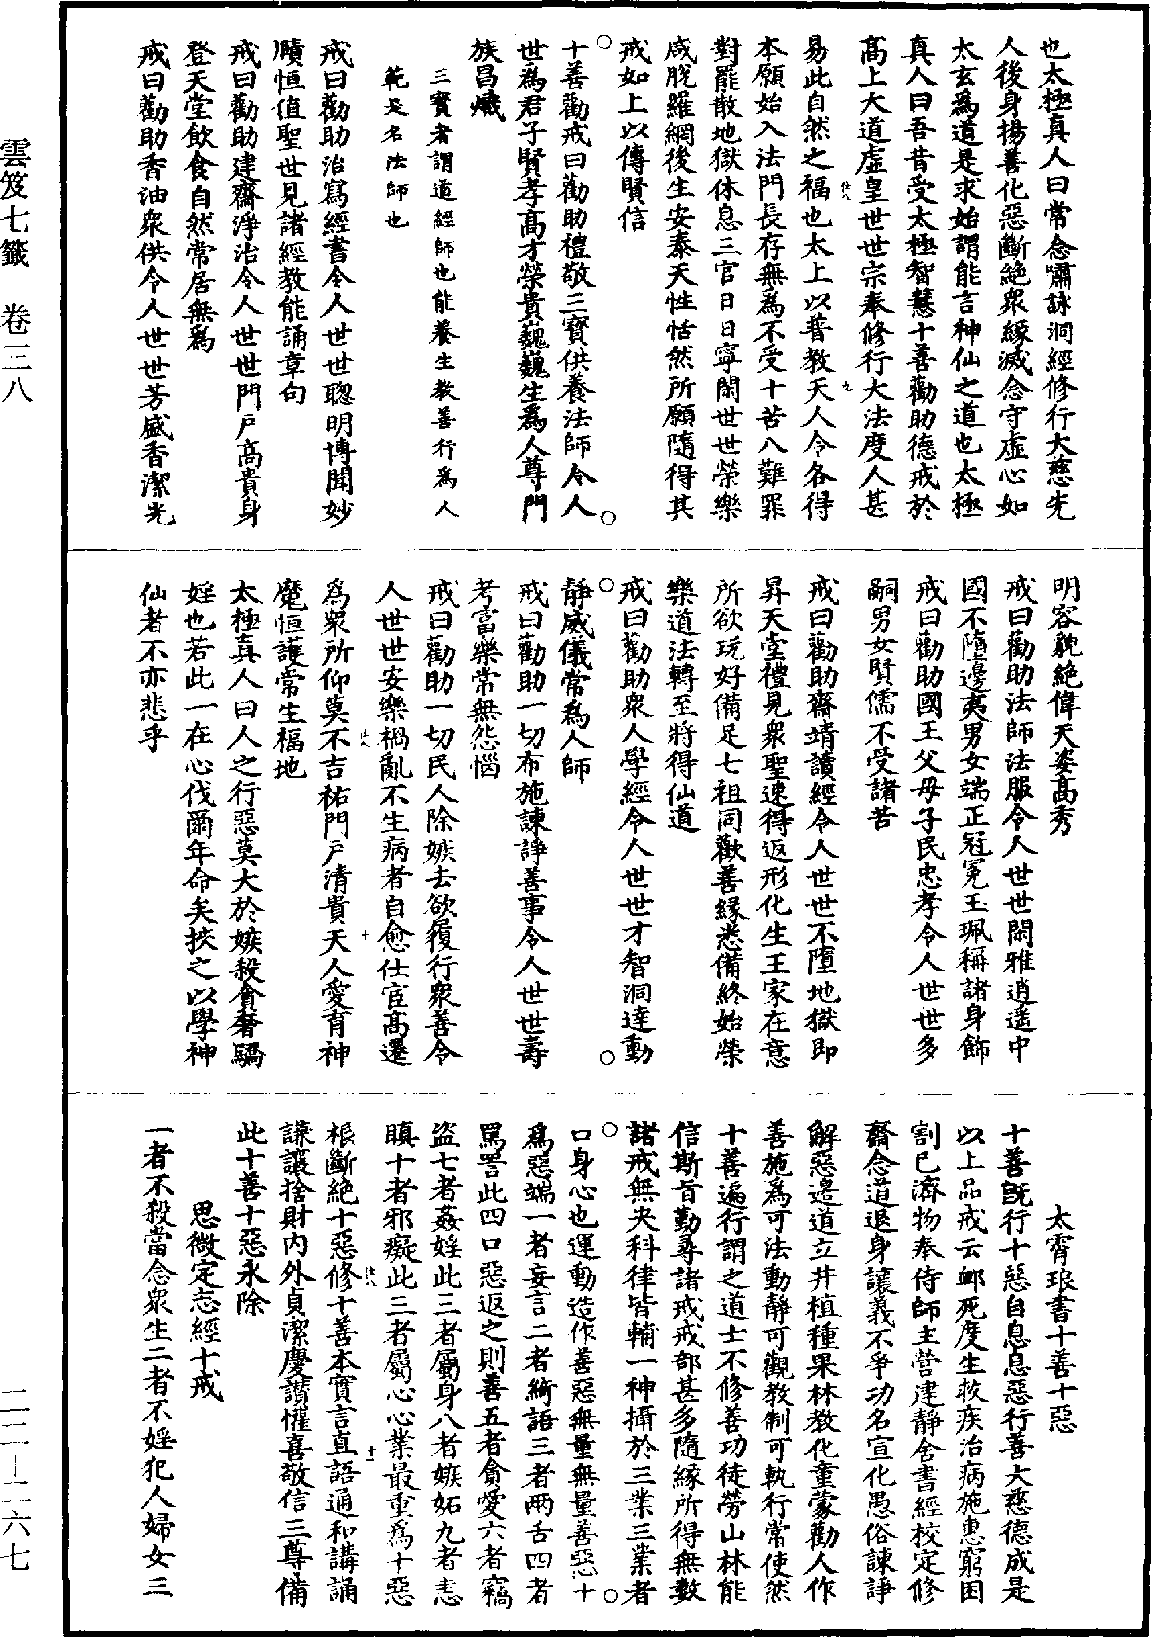 也太極真人曰常念嘯詠洞經修行大慈先
人後身揚善化惡斷絶衆緣滅念守虛心如
太玄爲道是求始謂能言神仙之道也太極
真人曰吾昔受太極智慧十善勸助德戒於
高上大道虛皇世世宗奉修行大法度人甚
易此自然之福也太上以普教天人令各得
本願始入法門長存無爲不受十苦八難罪
對罷散地獄休息三官日日寧閑世世榮樂
咸脫羅網後生安泰天性恬然所願隨得其
戒如上以傳賢信
十善勸戒曰勸助禮敬三寶供養法師令人
世爲君子賢孝高才榮貴巍巍生爲人尊門
族昌熾
三寶者謂道經師也能養生教善行爲人
範是名法師也
戒曰勸助治寫經書令人世世聰明博聞妙
賾恒值聖世見諸經教能誦章句
戒曰勸助建齋淨治令人世世門戶高貴身
登天堂飲食自然常居無爲
戒曰勸助香油衆供令人世世芳盛香潔光
明容貌絶偉天姿高秀
戒曰勸助法師法服令人世世閑雅逍遥中
國不墮邊夷男女端正冠冕玉珮稱諸身飾
戒曰勸助國王父母子民忠孝令人世世多
嗣男女賢儒不受諸苦
戒曰勸助齋靖讀經令人世世不墮地獄即
昇天堂禮見衆聖速得返形化生王家在意
所欲玩好備足七祖同歡善緣悉備終始榮
樂道法轉至將得仙道
戒曰勸助衆人學經令人世世才智洞達動
靜威儀常爲人師
戒曰勸助一切布施諫諍善事令人世世壽
考富樂常無怨惱
戒曰勸助一切民人除嫉去欲履行衆善令
人世世安樂禍亂不生病者自愈仕宦高遷
爲衆所仰莫不吉祐門戶清貴天人愛育神
魔恒護常生福地
太極真人曰人之行惡莫大於嫉殺貪奢驕
婬也若此一在心伐爾年命矣挾之以學神
仙者不亦悲乎
太霄琅書十善十惡
十善旣行十惡自息息惡行善大慈德成是
以上品戒云卹死度生救疾治病施惠窮困
割已濟物奉侍師主營建靜舍書經校定修
齋念道退身讓義不爭功名宣化愚俗諫諍
解惡邊道立井植種果林教化童蒙勸人作
善施爲可法動靜可觀教制可執行常使然
十善遍行謂之道士不修善功徒勞山林能
信斯旨勤尋諸戒戒部甚多隨緣所得無數
諸戒無央科律皆輔一神攝於三業三業者
口身心也運動造作善惡無量無量善惡十
爲惡端一者妄言二者綺語三者兩舌四者
罵詈此四口惡返之則善五者貪愛六者竊
盜七者姦婬此三者屬身八者嫉妬九者恚
瞋十者邪癡此三者屬心心業最重爲十惡
根斷絶十惡修十善本實言直語通和講誦
謙讓捨財內外貞潔慶讚懽喜敬信三尊備
此十善十惡永除
思微定志經十戒
一者不殺當念衆生二者不婬犯人婦女三
雲笈七籤 卷三八
二二—二六七